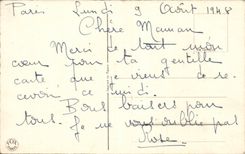 Paris Lundi 9 Août 1948
Chère Maman
Merci de tout mon
cœur pour ta gentille
carte que je viens de re-
cevoir ce midi.
Bons baisers pour
tous. Je ne vous oublie pas